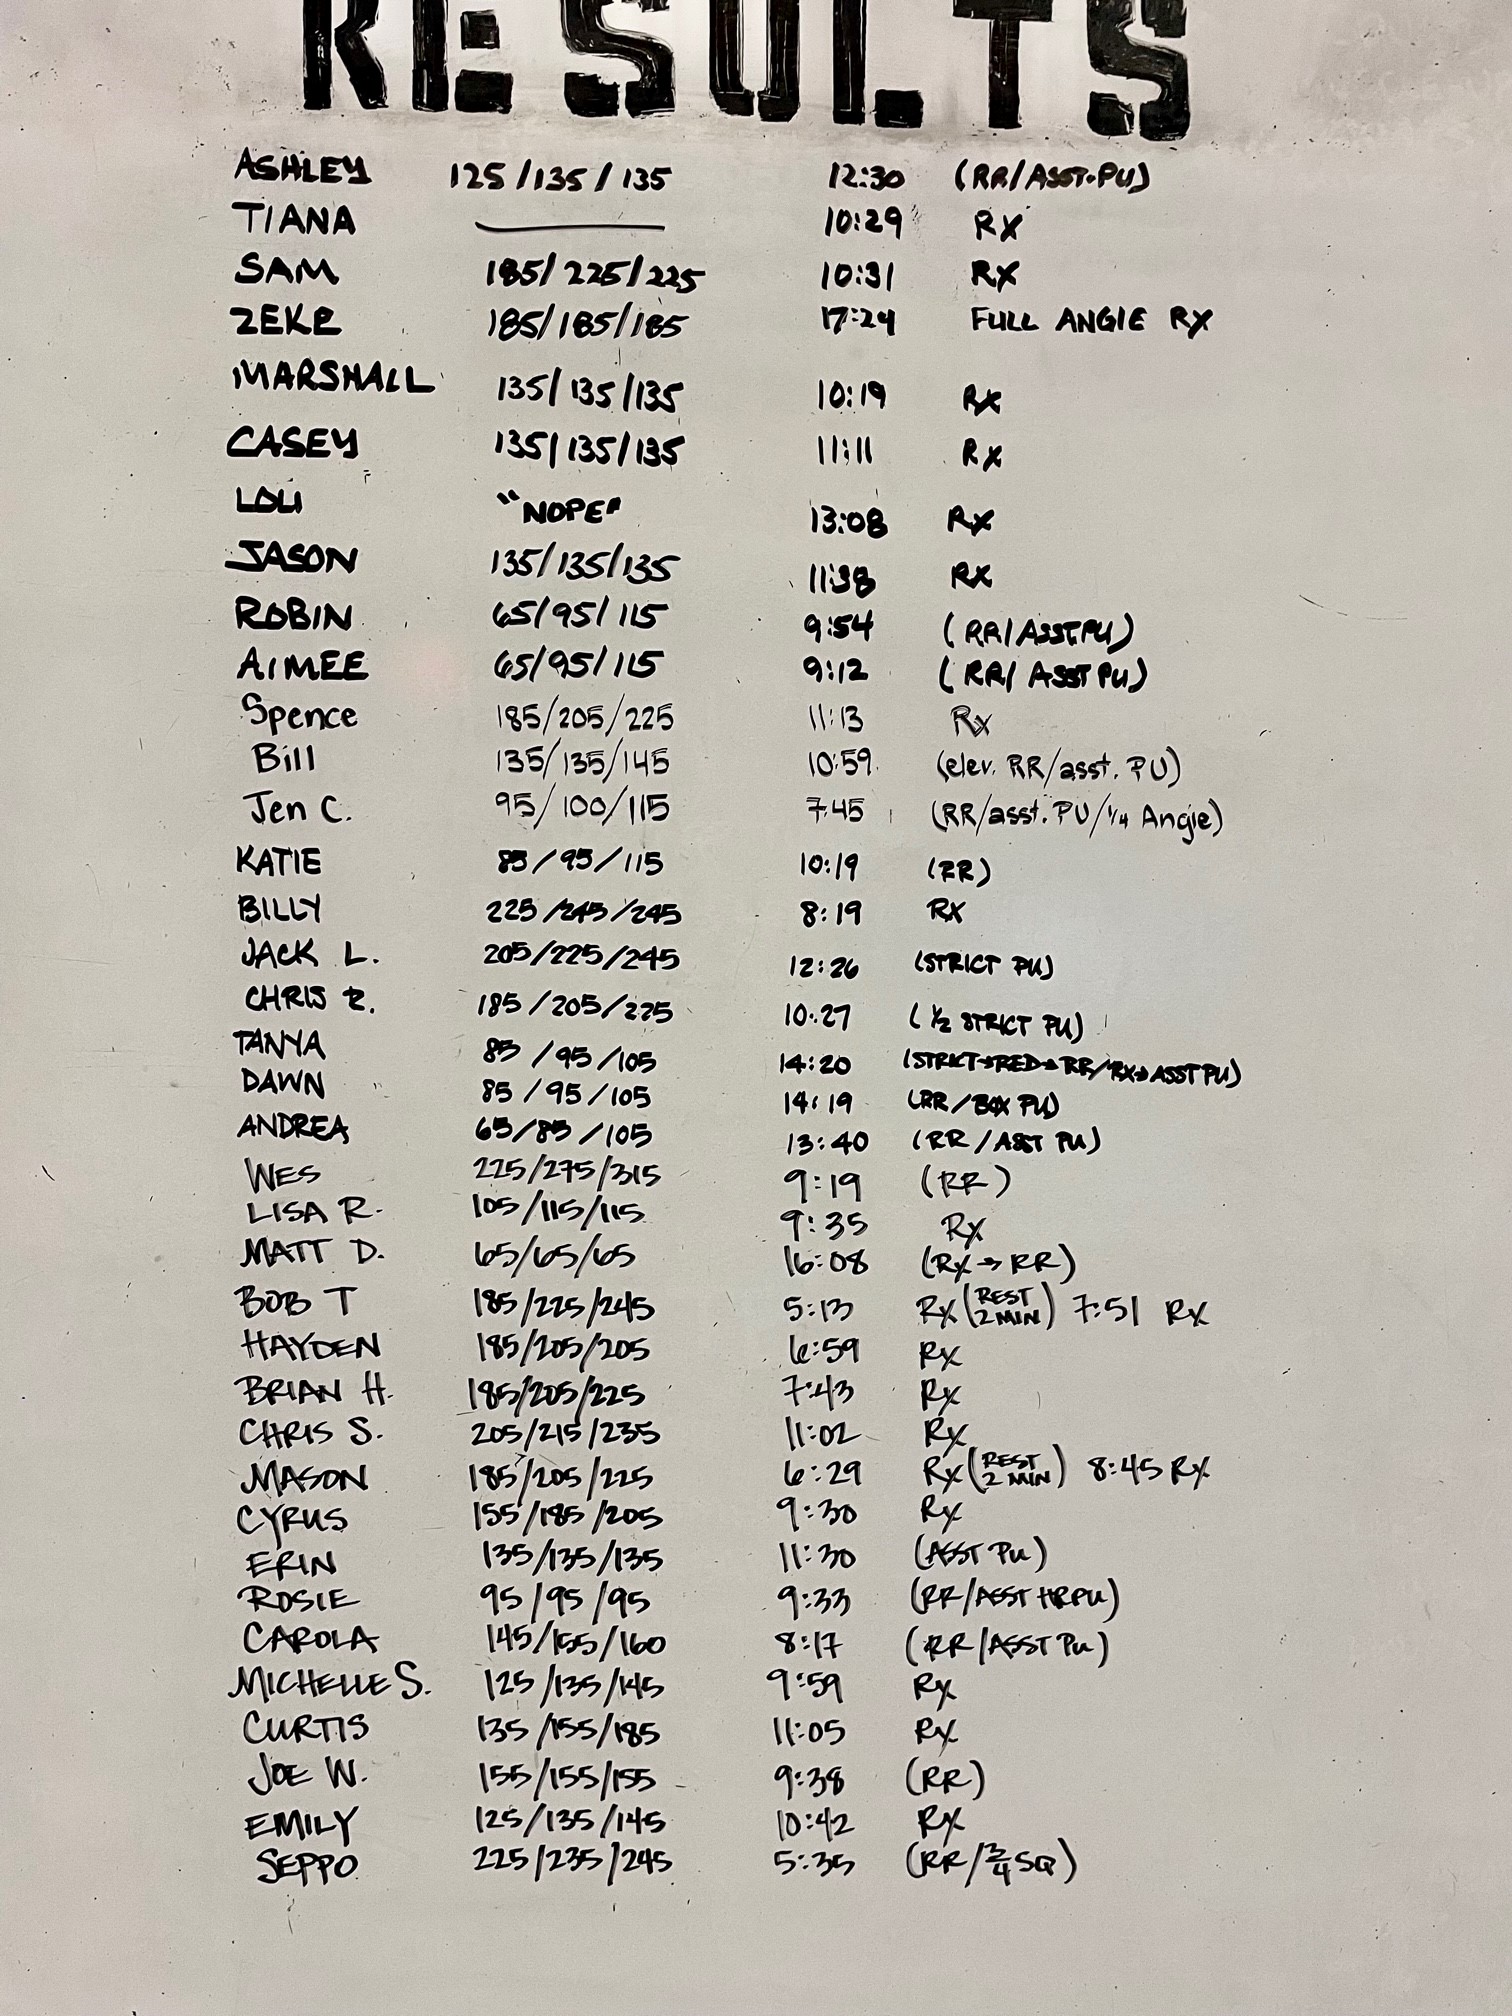 RESULTS
ASHLEY 125/135/135 12:30 (RR/ASST.PU)
TIANA — 10:29 Rx
SAM 185/225/225 10:31 Rx
ZEKE 185/185/185 17:24 FULL ANGIE Rx
MARSHALL 135/135/135 10:19 Rx
CASEY 135/135/135 11:11 Rx
LOU "NOPE" 13:08 Rx
JASON 135/135/135 11:38 Rx
ROBIN 65/95/115 9:54 (RR/ASST PU)
AIMEE 65/95/115 9:12 (RR/ASST PU)
Spence 185/205/225 11:13 Rx
Bill 135/135/145 10:59 (elev. RR/asst. PU)
Jen C. 95/100/115 7:45 (RR/asst. PU/1/4 Angie)
KATIE 85/95/115 10:19 (RR)
BILLY 225/245/245 8:19 RX
JACK L. 205/225/245 12:26 (STRICT PU)
CHRIS R. 185/205/225 10:27 (1/2 STRICT PU)
TANYA 85/95/105 14:20 (STRICT→RED→RR/RX→ASST PU)
DAWN 85/95/105 14:19 (RR/BOX PU)
ANDREA 65/85/105 13:40 (RR/ASST PU)
WES 225/275/315 9:19 (RR)
LISA R. 105/115/115 9:35 Rx
MATT D. 65/65/65 16:08 (Rx→RR)
BOB T 185/225/245 5:13 Rx (REST 2 MIN) 7:51 Rx
HAYDEN 185/205/205 6:59 Rx
BRIAN H. 185/205/225 7:43 Rx
CHRIS S. 205/215/235 11:02 Rx
MASON 185/205/225 6:29 Rx (REST 2 MIN) 8:45 Rx
CYRUS 155/185/205 9:30 Rx
ERIN 135/135/135 11:30 (ASST PU)
ROSIE 95/95/95 9:33 (RR/ASST HRPU)
CAROLA 145/155/160 8:17 (RR/ASST PU)
MICHELLE S. 125/135/145 9:59 Rx
CURTIS 135/155/185 11:05 Rx
JOE W. 155/155/155 9:38 (RR)
EMILY 125/135/145 10:42 Rx
SEPPO 225/235/245 5:35 (RR/3/4 SQ)